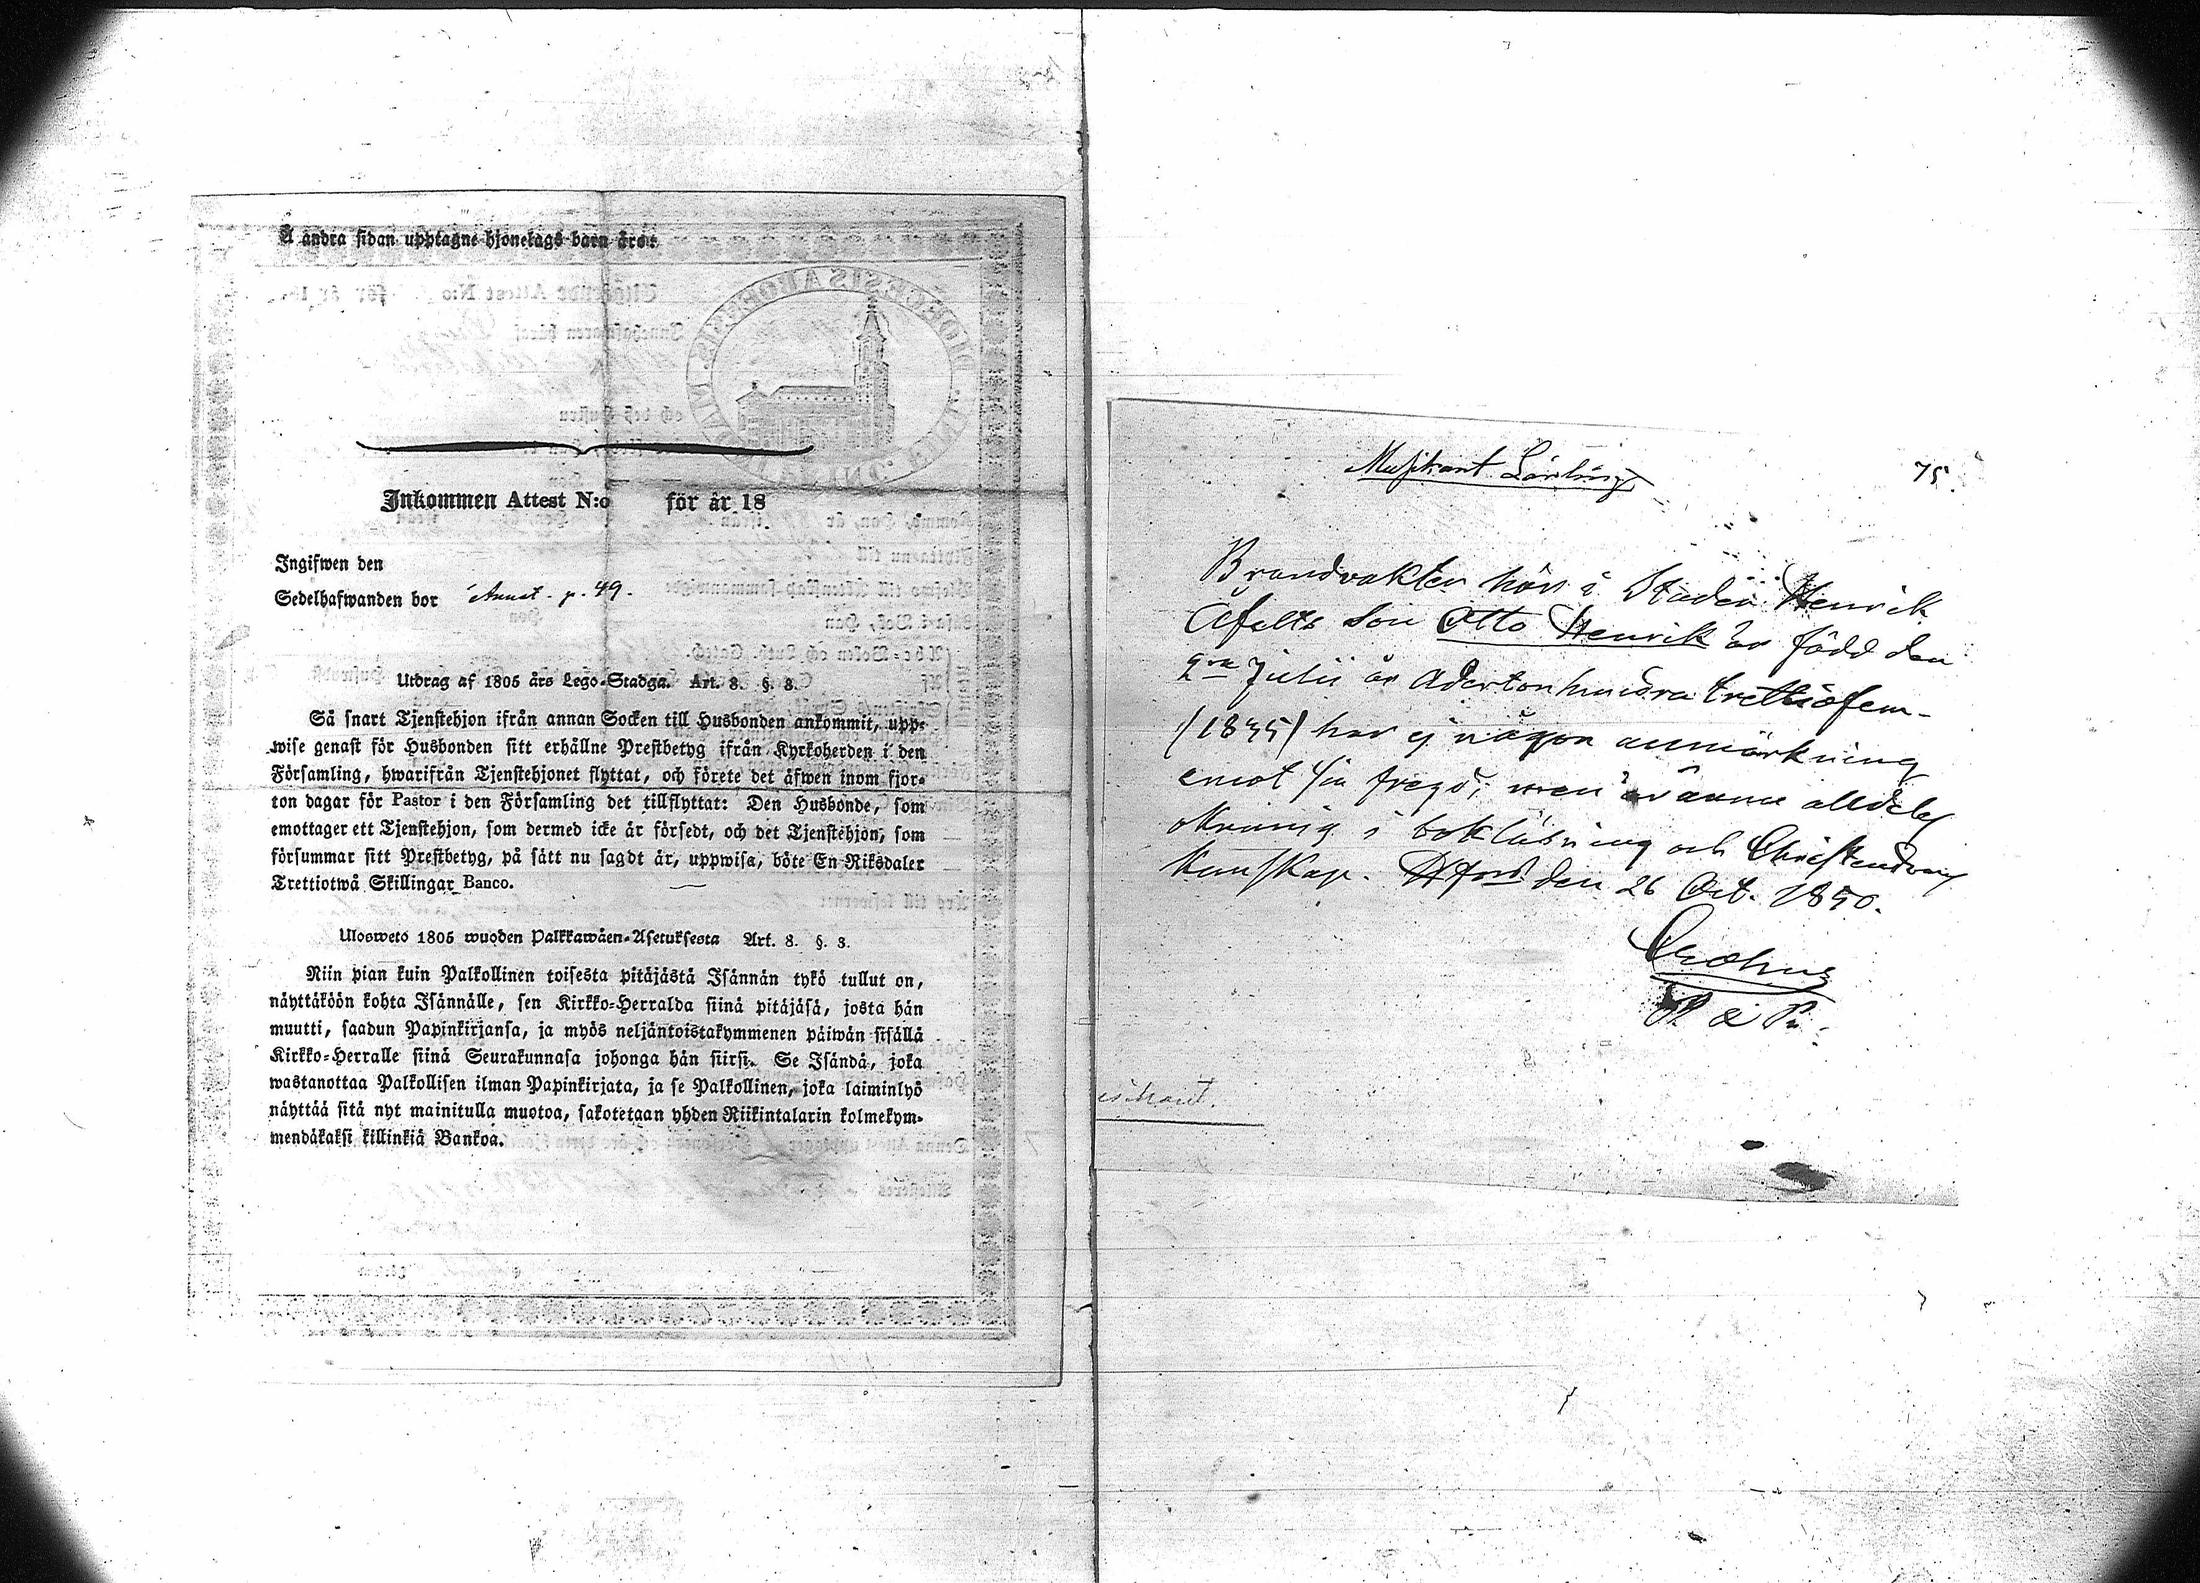 Å andra sidan upptagne hjonelags barn äro:
Inkommen Attest N:o för år 18
Ingifwen den
Sedelhafwanden bor Annot. p. 49.
Utdrag af 1805 års Lego-Stadga. Art. 8. §. 3.
Så snart Tjenstehjon ifrån annan Socken till Husbonden ankommit, upp-
wise genast för Husbonden sitt erhållne Prestbetyg ifrån Kyrkoherden i den
Församling, hwarifrån Tjenstehjonet flyttat, och förete det äfwen inom fjor-
ton dagar för Pastor i den Församling det tillflyttat: Den Husbonde, som
emottager ett Tjenstehjon, som dermed icke är försedt, och det Tjenstehjon, som
försummar sitt Prestbetyg, på sätt nu sagdt är, uppwisa, böte En Riksdaler
Trettiotwå Skillingar Banco.
Ulosweto 1805 wuoden Palkkawäen-Asetuksesta Art. 8. §. 3.
Niin pian kuin Palkollinen toisesta pitäjästä Isännän tykö tullut on,
näyttäköön kohta Isännälle, sen Kirkko-Herralda siinä pitäjäsä, josta hän
muutti, saadun Papinkirjansa, ja myös neljäntoistakymmenen päiwän sisällä
Kirkko-Herralle siinä Seurakunnasa johonga hän siirsi. Se Isändä, joka
wastanottaa Palkollisen ilman Papinkirjata, ja se Palkollinen, joka laiminlyö
näyttää sitä nyt mainitulla muotoa, sakotetaan yhden Riikintalarin kolmekym-
mendäkaksi killinkiä Bankoa.
Musikant 75.
Brandvakten här i Staden Henrik
Åfelts son Otto Henrik är född den
9de Julii år Adertonhundra trettiofem-
(1835) har ej någon anmärkning
emot sin frejd, men är ännu alldeles
okunnig i bokläsning och Christendoms
kunskap. H:fors den 26 Oct. 1850.